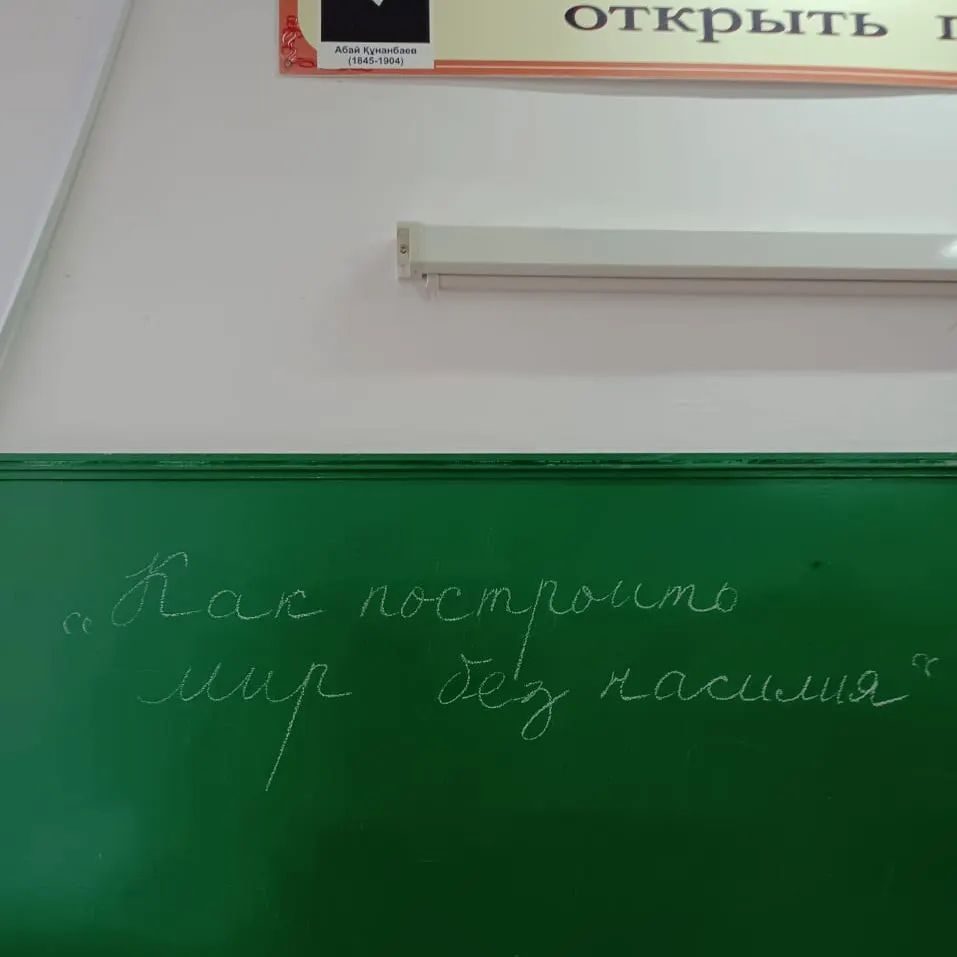 открыть
Абай Құнанбаев
(1845-1904)
"Как построить
мир без насилия"